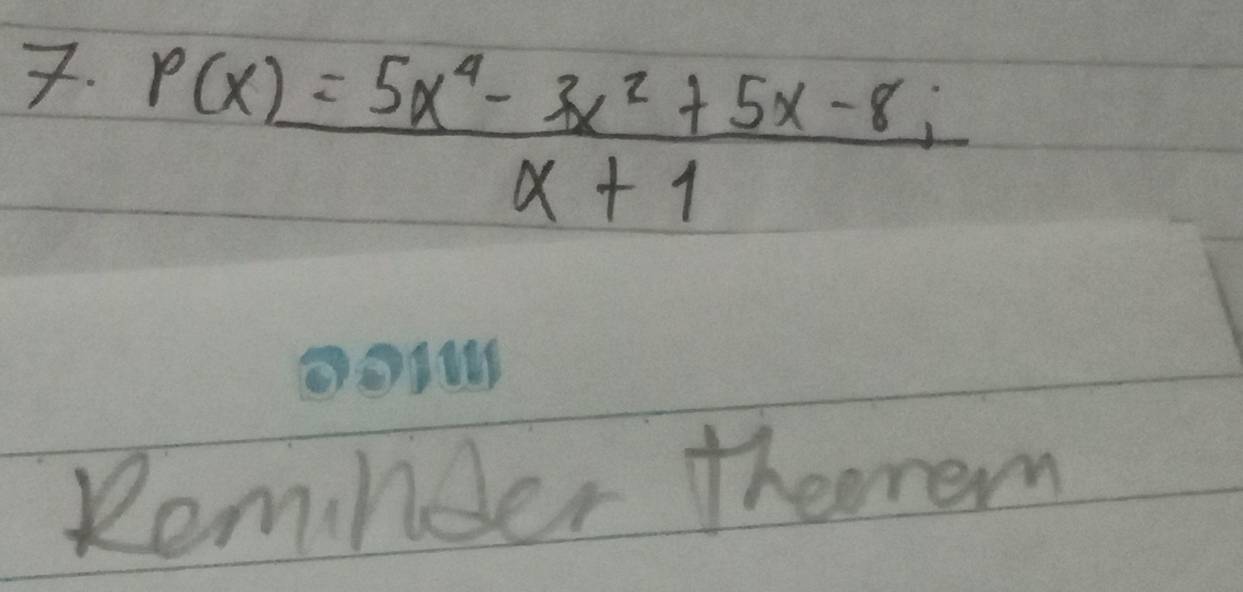 7. P(x) = 5x⁴ - 3x² + 5x - 8;
x + 1
Reminder Theorem